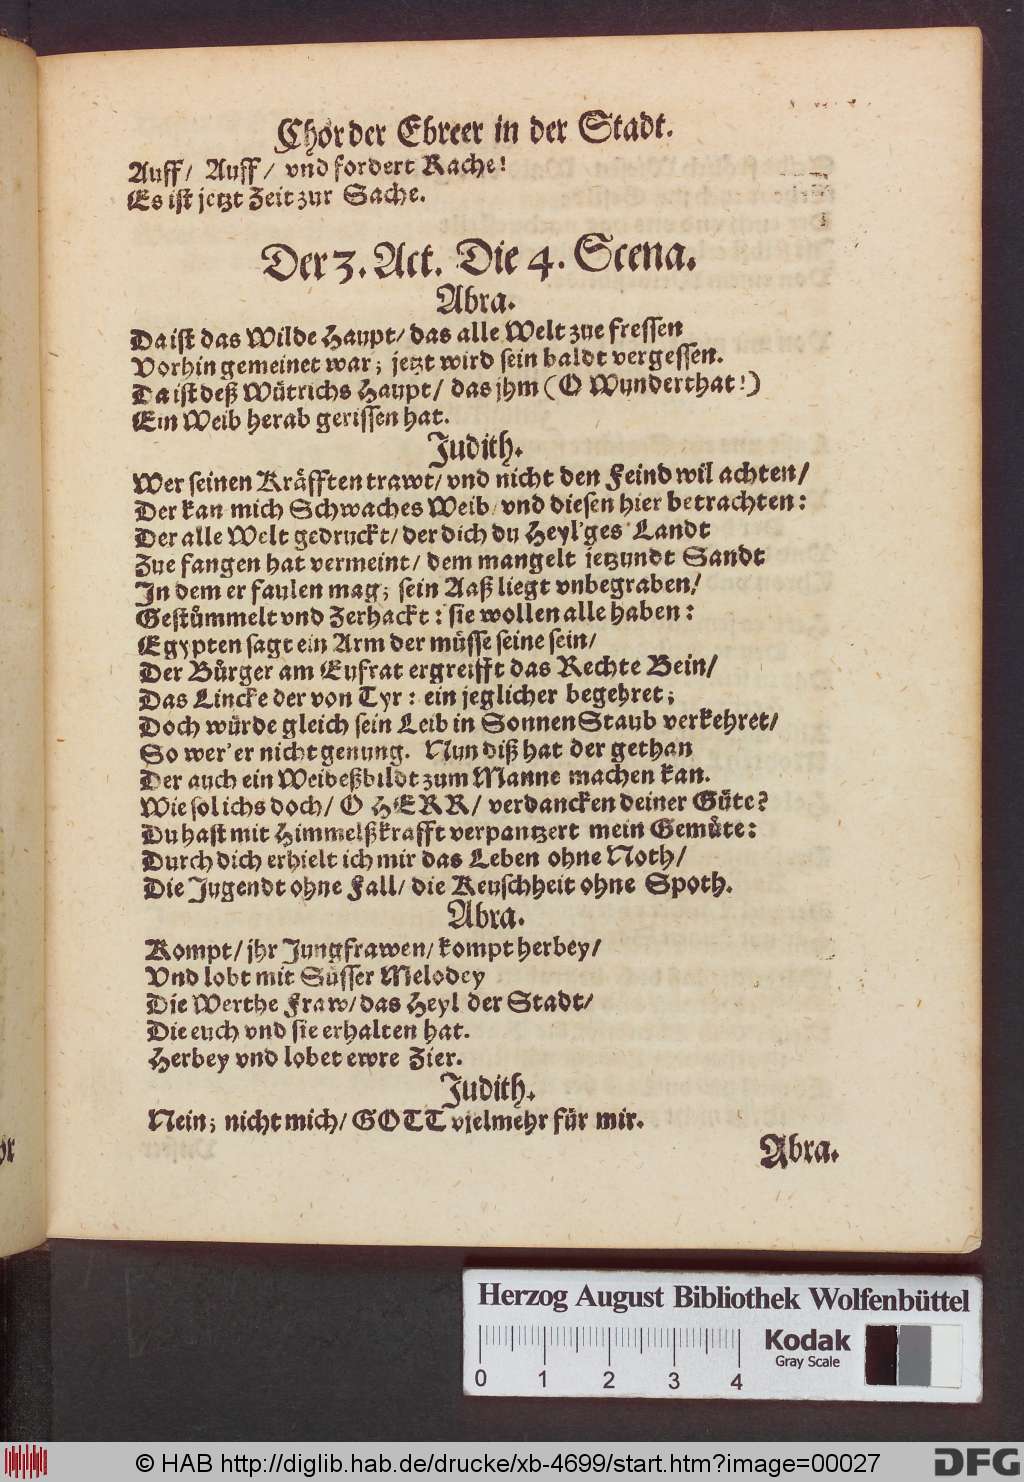 Chor der Ebreer in der Stadt.
Auff/ Auff/ vnd fordert Rache!
Es ist jetzt Zeit zur Sache.
Der 3. Act. Die 4. Scena.
Abra.
Da ist das Wilde Haupt/ das alle Welt zue fressen
Vorhin gemeinet war; jetzt wird sein baldt vergessen.
Da ist deß Wütrichs Haupt/ das jhm (O Wunderthat!)
Ein Weib herab gerissen hat.
Judith.
Wer seinen Kräfften trawt/ vnd nicht den Feind wil achten/
Der kan mich Schwaches Weib/ vnd diesen hier betrachten:
Der alle Welt gedruckt/ der dich du Heyl'ges Landt
Zue fangen hat vermeint/ dem mangelt jetzundt Sandt
In dem er faulen mag; sein Aaß liegt vnbegraben/
Gestümmelt vnd Zerhackt: sie wollen alle haben:
Egypten sagt ein Arm der müsse seine sein/
Der Bürger am Eufrat ergreifft das Rechte Bein/
Das Lincke der von Tyr: ein jeglicher begehret;
Doch würde gleich sein Leib in SonnenStaub verkehret/
So wer' er nicht genung. Nun diß hat der gethan
Der auch ein Weibeßbildt zum Manne machen kan.
Wie sol ichs doch/ O HERR/ verdancken deiner Güte?
Du hast mit Himmelßkrafft verpantzert mein Gemüte:
Durch dich erhielt ich mir das Leben ohne Noth/
Die Jugendt ohne Fall/ die Keuschheit ohne Spoth.
Abra.
Kompt/ jhr Jungfrawen/ kompt herbey/
Vnd lobt mit Süsser Melodey
Die Werthe Fraw/ das Heyl der Stadt/
Die euch vnd sie erhalten hat.
Herbey vnd lobet ewre Zier.
Judith.
Nein; nicht mich/ GOTT vielmehr für mir.
Abra.
Herzog August Bibliothek Wolfenbüttel
Kodak
Gray Scale
0 1 2 3 4
© HAB http://diglib.hab.de/drucke/xb-4699/start.htm?image=00027
DFG